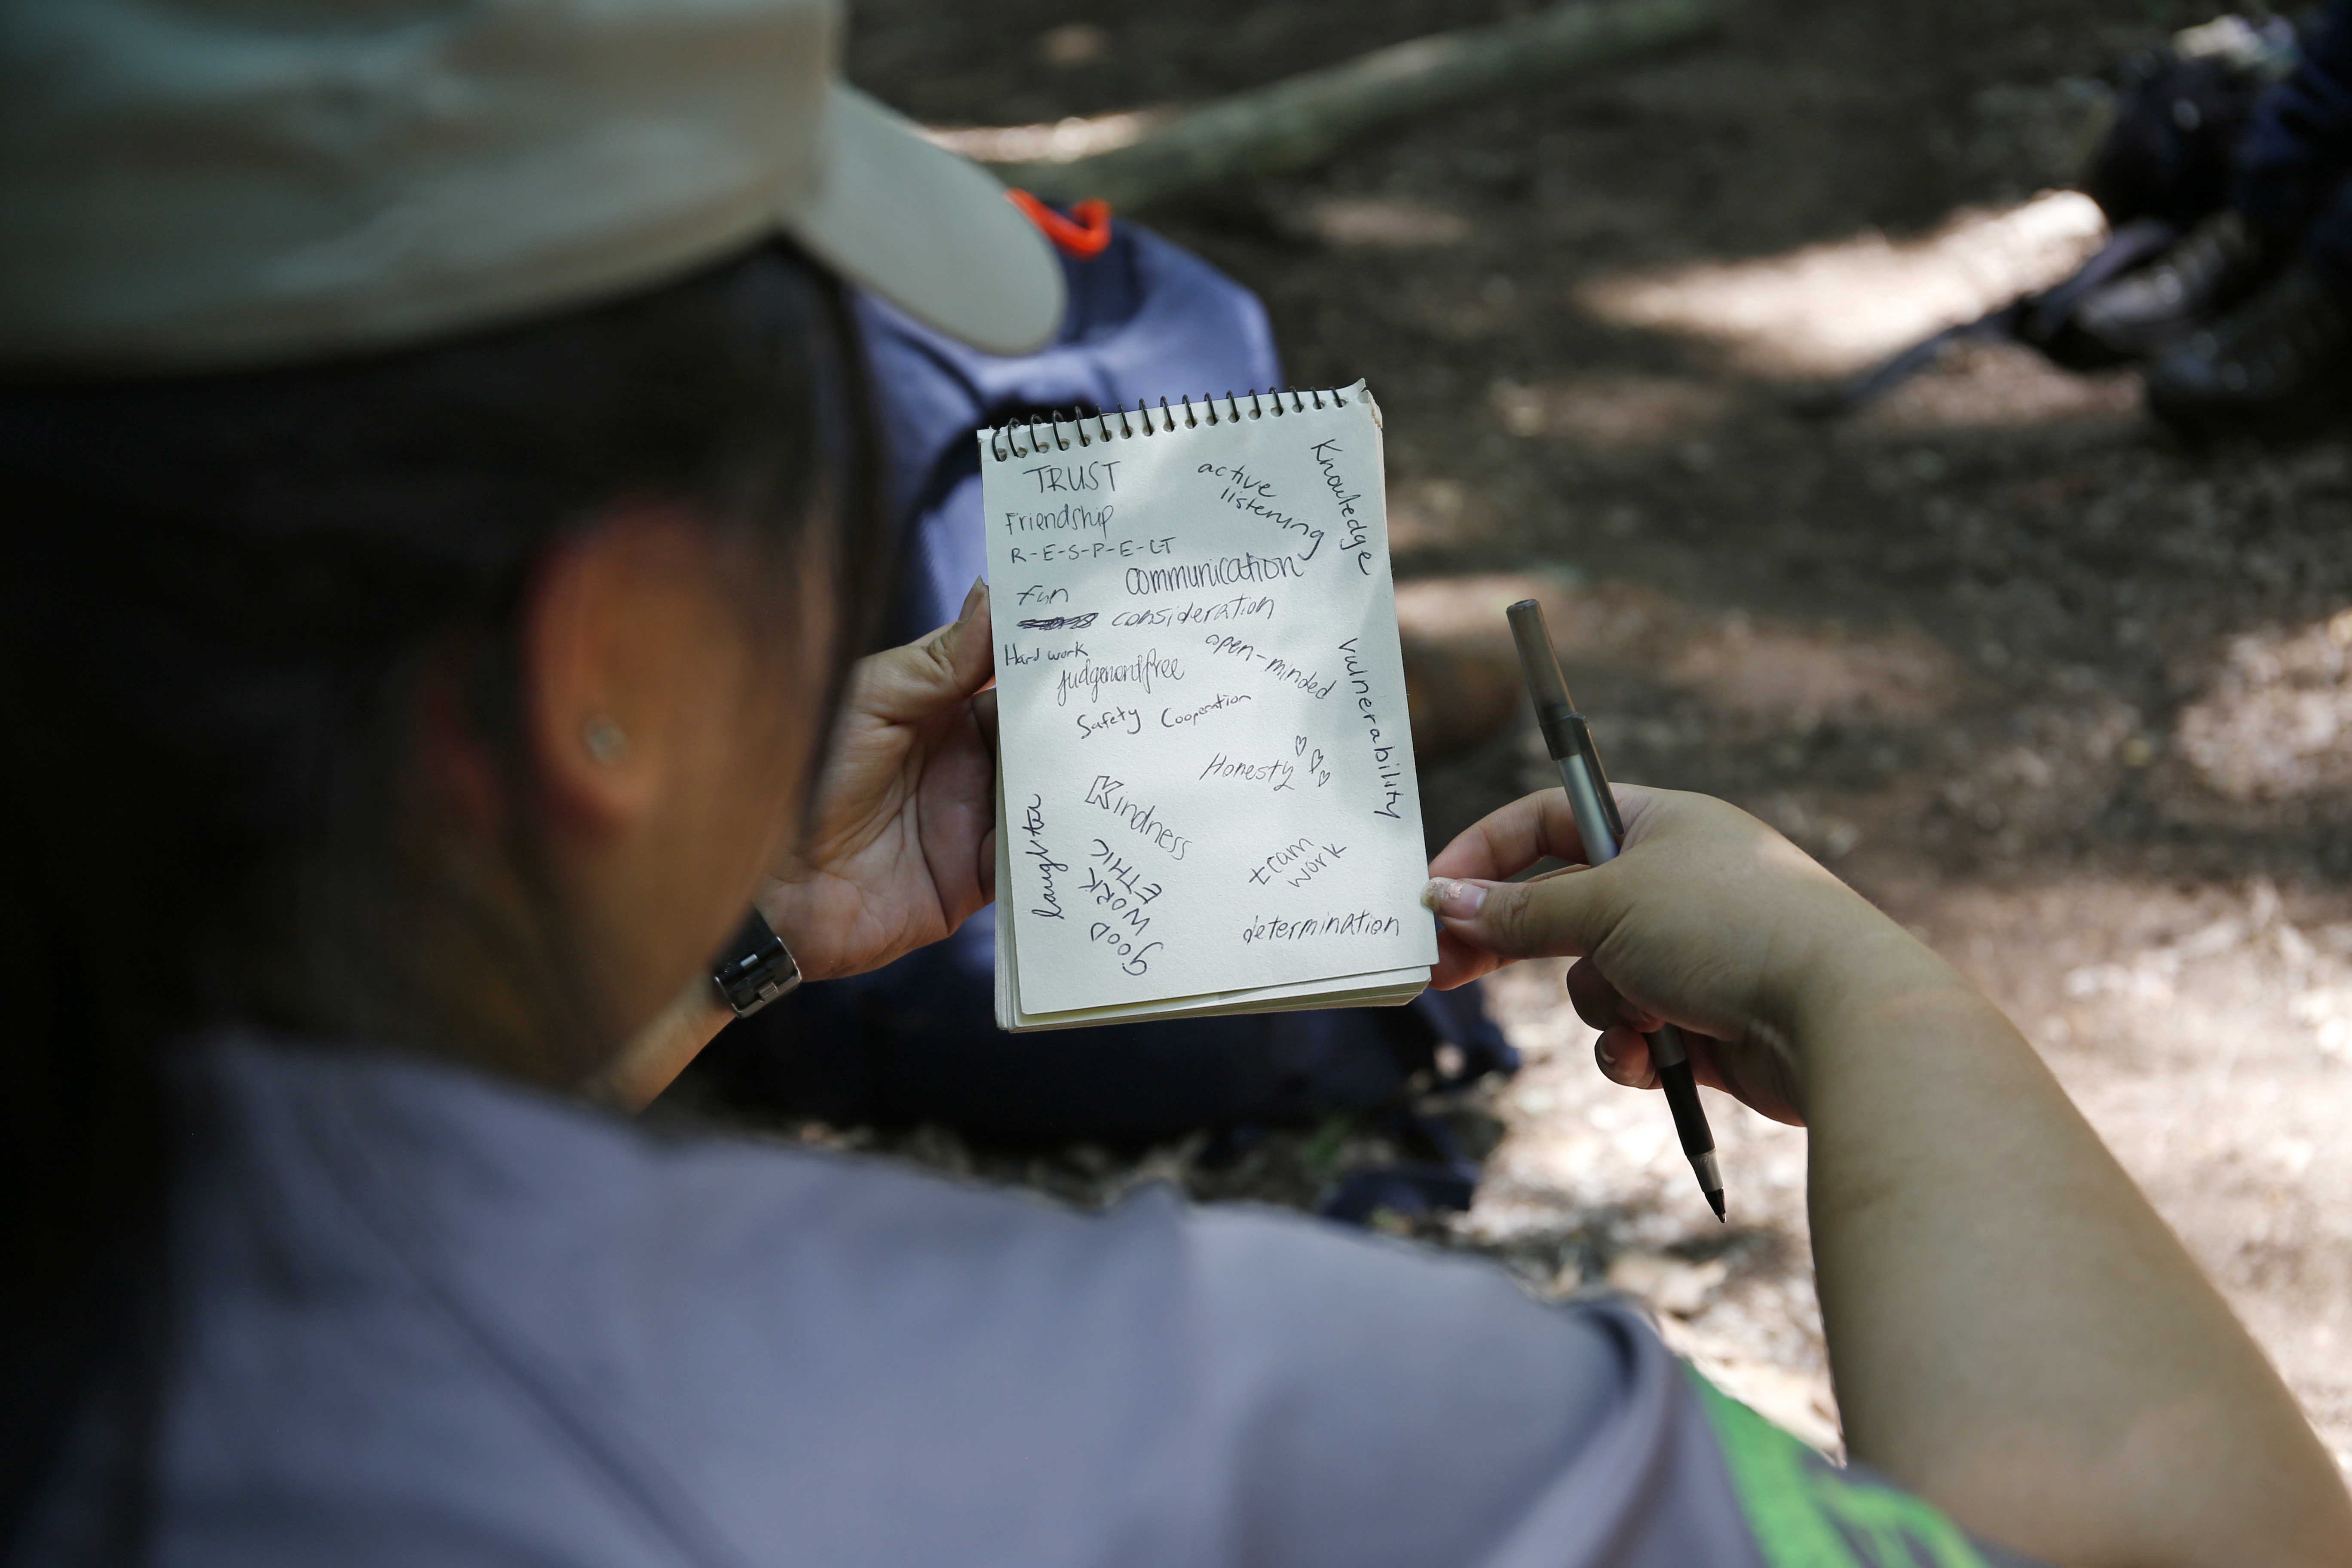 TRUST
active
listening
Knowledge
Friendship
R-E-S-P-E-CT
Fun
communication
consideration
Hard work
open-minded
judgemendfree
vulnerability
Safety Cooperation
Honesty
Kindness
laughter
GOOD
WORK
ETHIC
team
work
determination